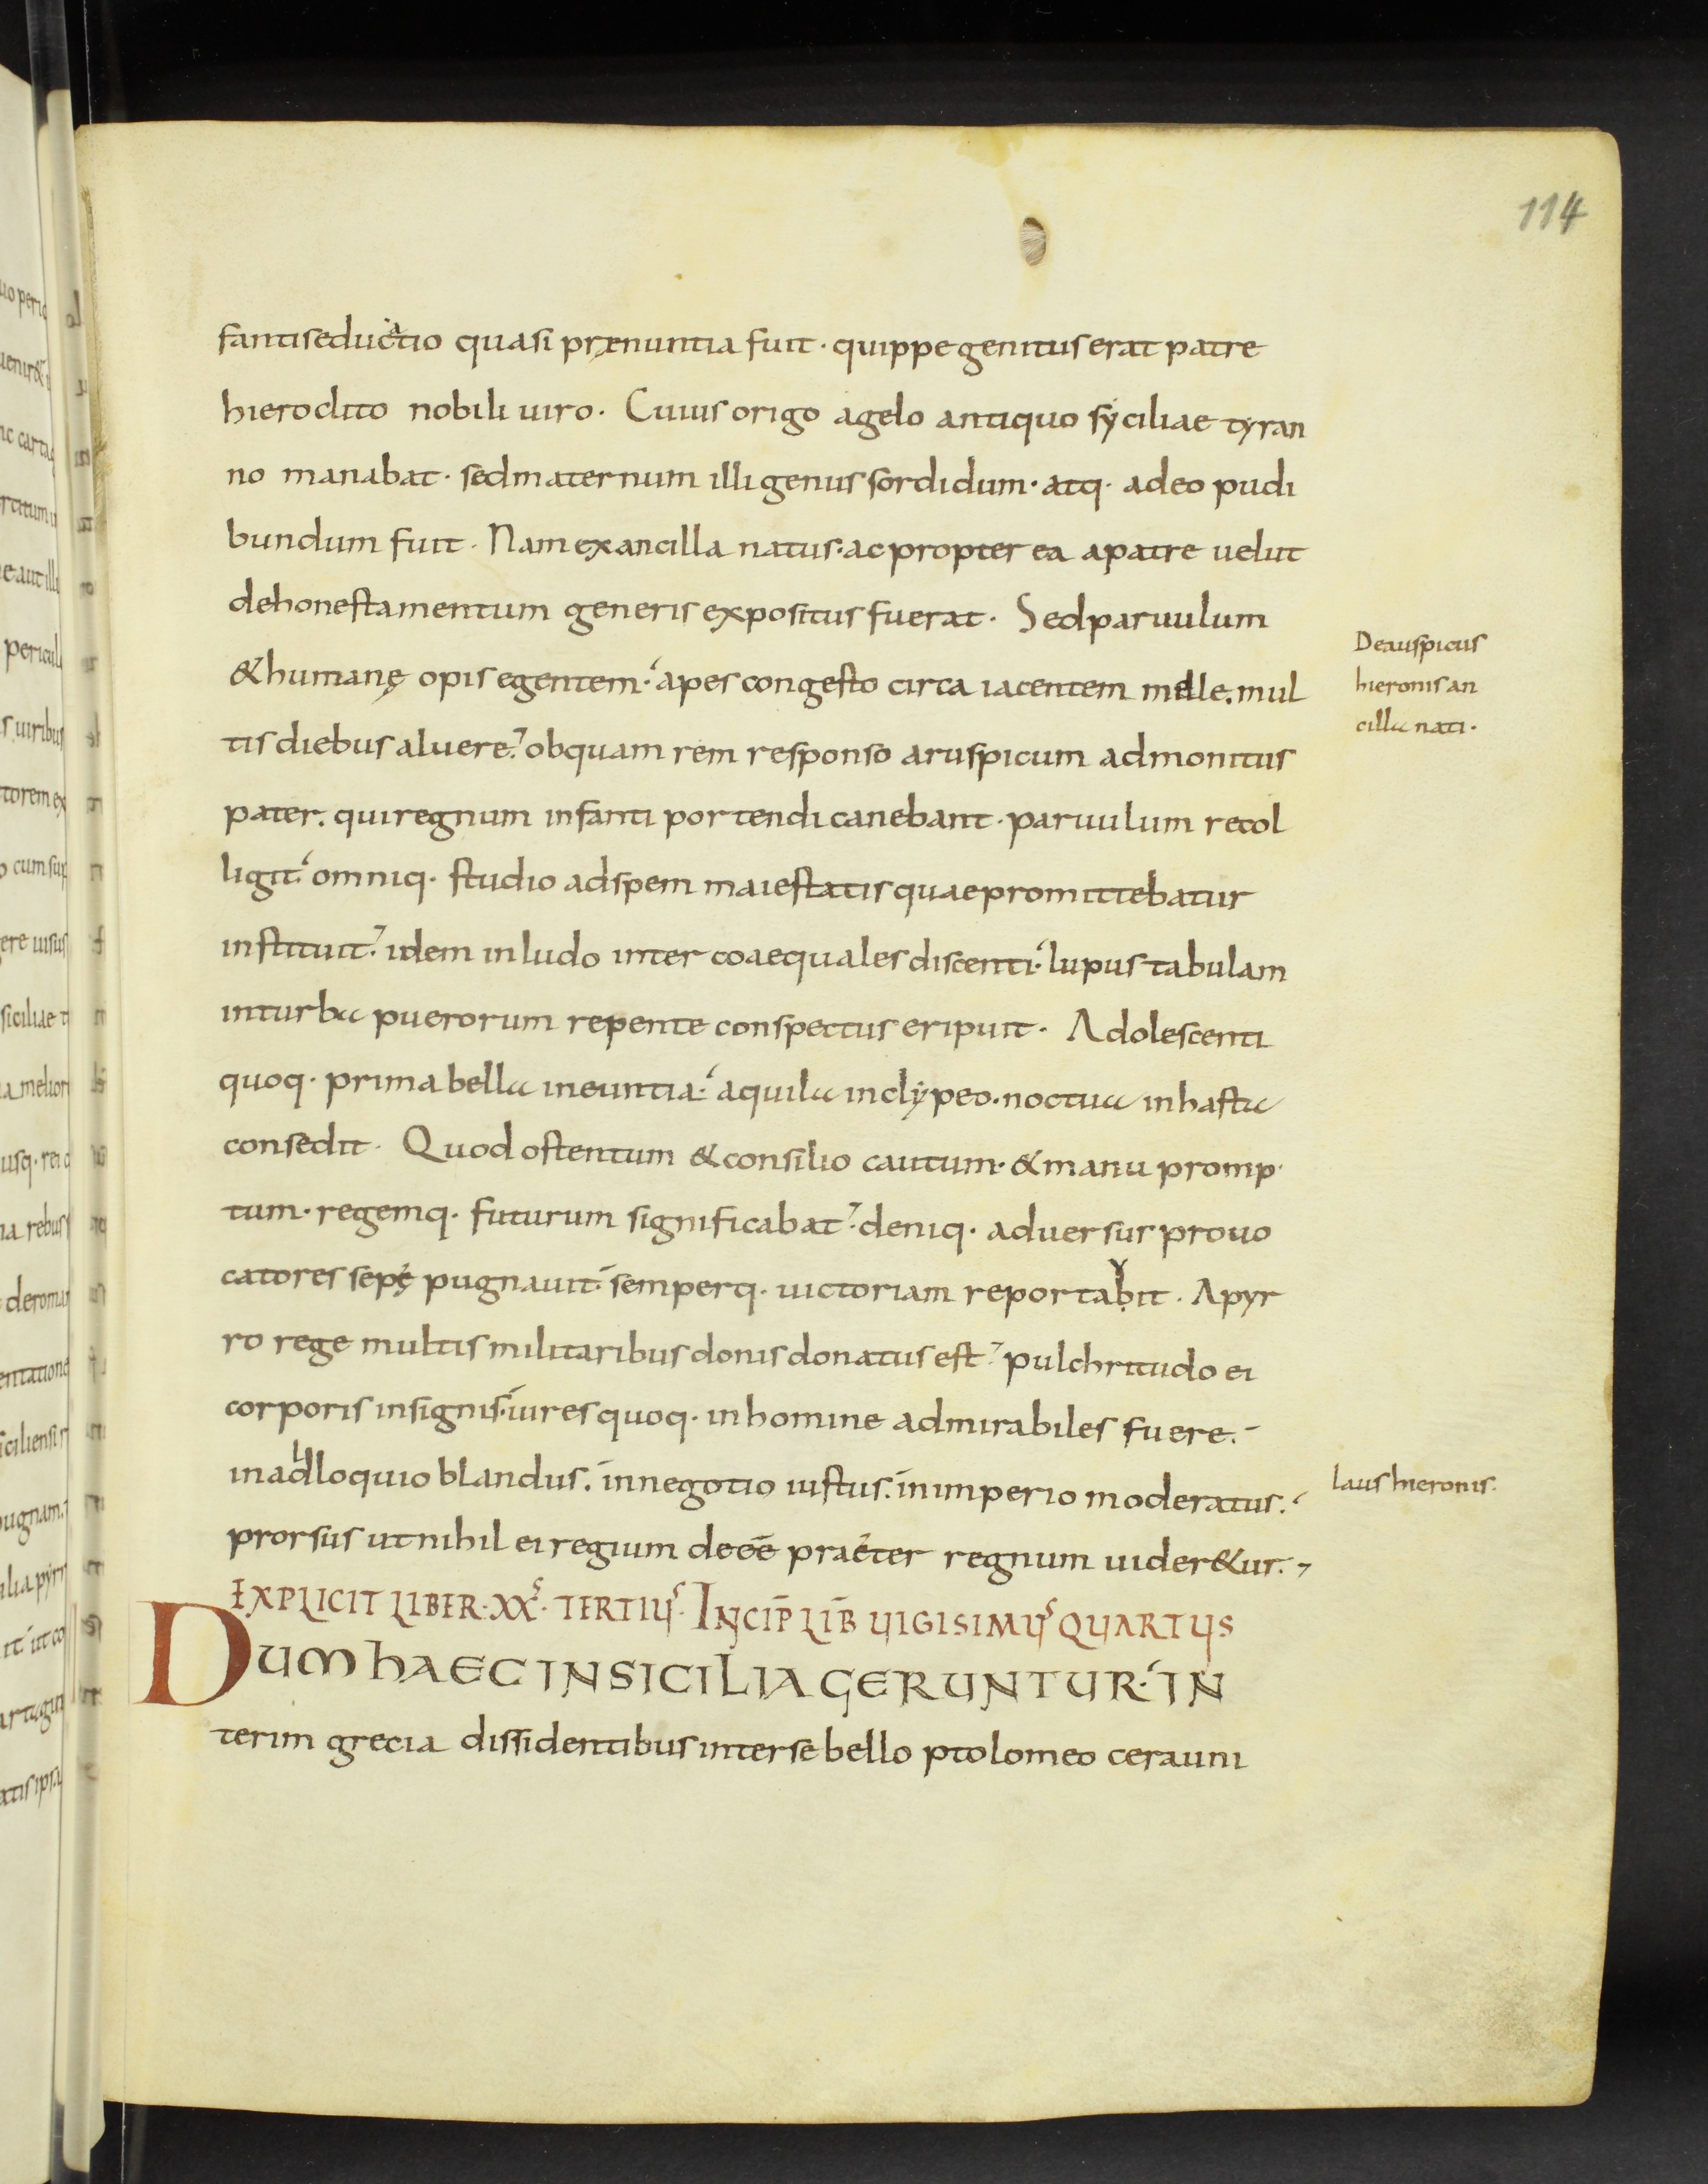 114
fantis educatio quasi prænuntia fuit · quippe genitus erat patre
hieroclito nobili uiro · Cuius origo agelo antiquo syciliae tyran
no manabat · sed maternum illi genus sordidum · atq· adeo pudi
bundum fuit · Nam ex ancilla natus · ac propter ea a patre uelut
dehonestamentum generis expositus fuerat · Sed paruulum
& humanę opis egentem · apes congesto circa iacentem melle . mul
tis diebus aluere . ob quam rem responso aruspicum admonitus
pater . qui regnum infanti portendi canebant · paruulum recol
ligit omniq· studio ad spem maiestatis quae promittebatur
instituit . idem in ludo inter coaequales discenti · lupus tabulam
in turba puerorum repente conspectus eripuit · Adolescenti
quoq· prima bella ineuntia · aquila in clypeo . noctua in hasta
consedit · Quod ostentum & consilio cautum · & manu promp
tum · regemq· futurum significabat . deniq· aduersus prouo
catores sepę pugnauit · semperq· uictoriam reportabit · A pyr
ro rege multis militaribus donis donatus est . pulchritudo ei
corporis insignis · uires quoq· in homine admirabiles fuere .
in adloquio blandus . in negotio iustus . in imperio moderatus .
prorsus ut nihil ei regium deēē praeter regnum uider&ur .
EXPLICIT LIBER · XXS · TERTIUS · INCIP̄ LIB̄ UIGISIMUS QUARTUS
DUM HAEC IN SICILIA GERUNTUR · IN
terim grecia dissidentibus inter se bello ptolomeo cerauni
De auspicus
hieronis an
cilla nati ·
laus hieronis .